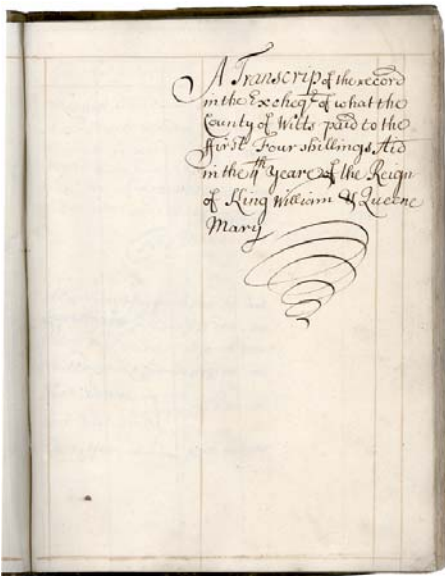 A Transcrip of the record
in the Excheqr of what the
County of Wilts paid to the
first Four shillings Aid
in the 4th Yeare of the Reign
of King William & Queene
Mary